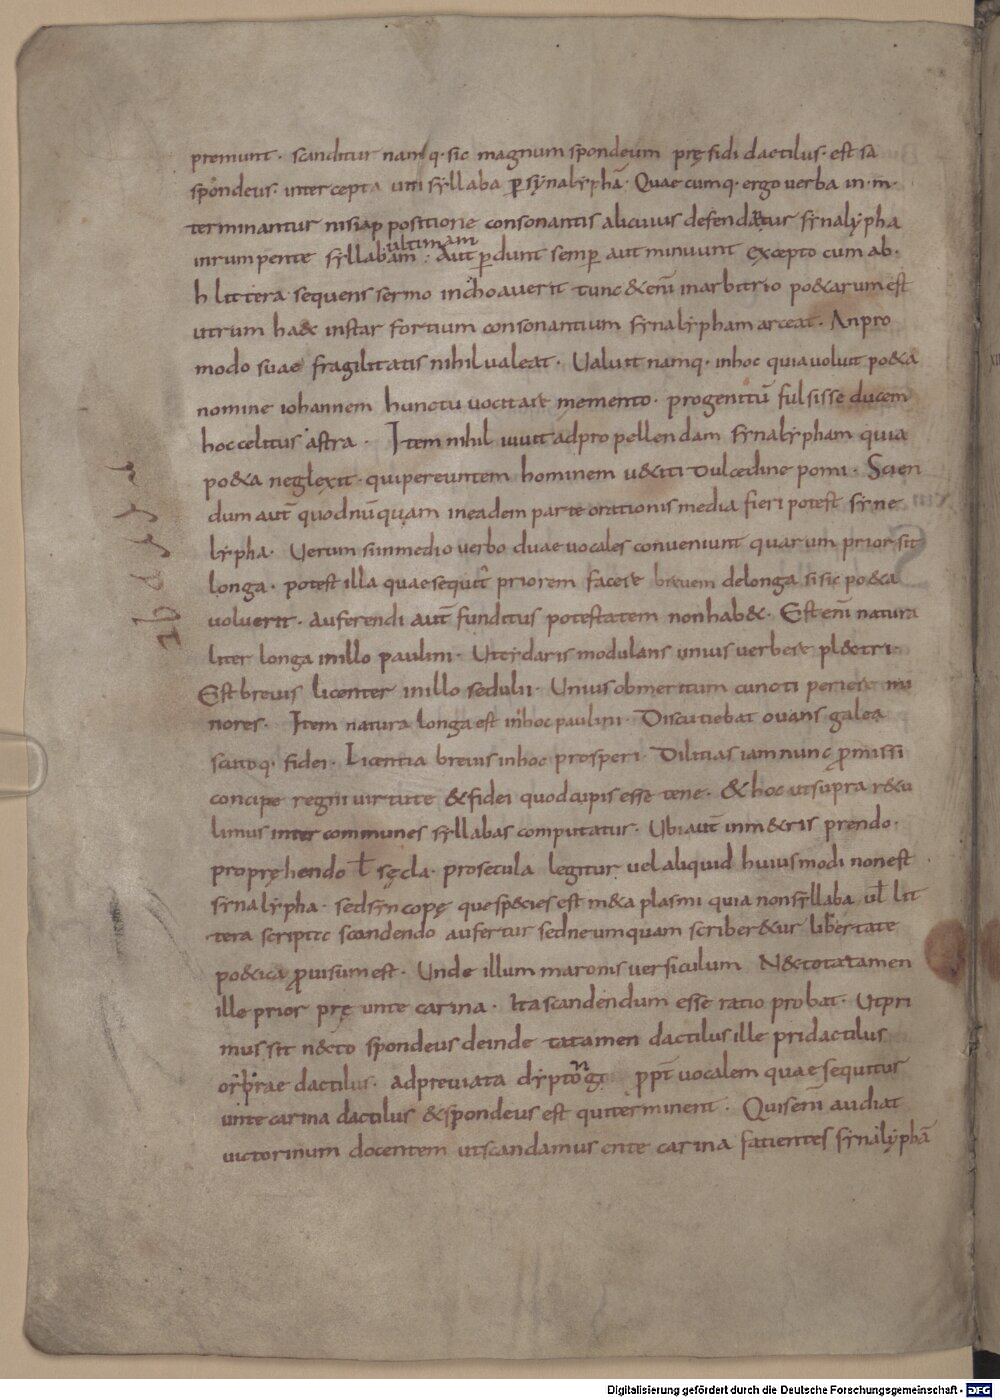 premunt · scanditur namq· sic magnum spondeum pręsidi dactilus · est sa
spondeus · intercepta uni syllaba p synalyphā · Quaecumq· ergo uerba in · m ·
terminantur nisi ap positione consonantis alicuius defendatur synalypha
ultimam
inrumpente syllabam · Aut pdunt semp aut minuunt excepto cum ab ·
h littera sequens sermo inchoauerit tunc &enī inarbitrio po&arum est
utrum haec instar fortium consonantium synalypham arceat · An pro
modo suae fragilitatis nihil ualeat · Ualuit namq· inhoc quia uoluit po&a
nomine iohannem hunc tu uocitare memento · progenitū fulsisse ducem
hoc celitus astra · Item nihil iuuit ad propellendam synalypham quia
po&a neglexit · qui pereuntem hominem u&iti dulcedine pomi · Scien
dum aut quod nūquam ineadem parte orationis media fieri potest syne
lypha · Uerum si inmedio uerbo duae uocales conueniunt quarum prior sit
longa · potest illa quae sequit priorem facere breuem de longa si sic po&a
uoluerit · auferendi aut funditus potestatem non hab& · Est enī natura
liter longa inillo paulini · Uterdaris modulans unius uerbere pl&tri
Est breuis licenter inillo sedulii · Unius ob meritum cuncti periere mi
nores · Item natura longa est inhoc paulini · Discutiebat ouans galea
scutoq· fidei · Licentia breuis inhoc prosperi · Dilitias iam nunc pmissi
concipe regni uirtute &fidei quod cupis esse tene · & hoc ut supra r&u
limus inter communes syllabas computatur · Ubi aut inm&ris prendo ·
pro pręhendo ł sęcla · pro secula legitur uel aliquid huiusmodi non est
synalypha · sed syncopę que species est m&a plasmi quia non syllaba ul lit
tera scripte scandendo aufertur sed ne umquam scriber&ur libertate
po&ica puisum est · Unde illum maronis uersiculum N&tota tamen
ille prior pręunte carina · Ita scandendum esse ratio probat · Ut pri
mus sit n&to spondeus deinde tatamen dactilus ille pri dactilus
dactilus · adpreuiata dyptong ppt uocalem quae sequitur
unte carina dactilus &spondeus est qui terminent · Quis enī audiat
uictorinum docentem ut scandamus ente carina facientes synalyphā